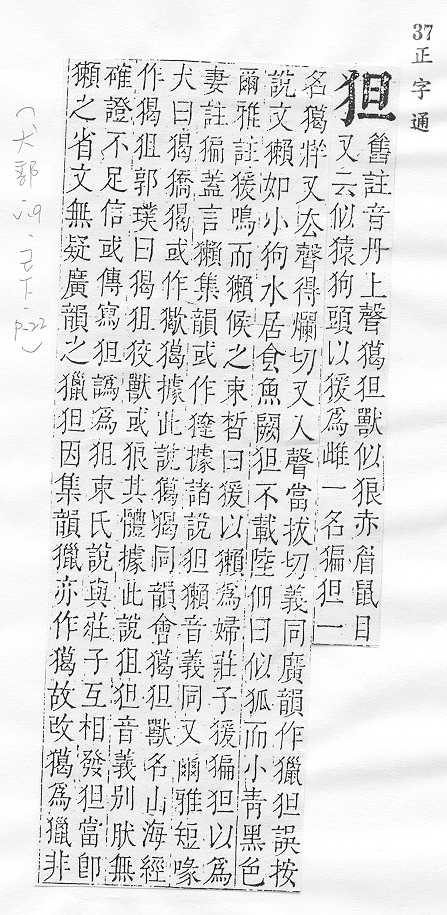 37正字通
狚
舊註音丹上聲獦狚獸似狼赤眉鼠目
又云似猿狗頭以猨爲雌一名猵狚一
名獦𤞞又去聲得爛切又入聲當拔切義同廣韻作獵狚誤按
說文獺如小狗水居食魚闕狚不載陸佃曰似狐而小靑黑色
爾雅註猨鳴而獺候之束晳曰猨以獺爲婦莊子猨猵狚以爲
妻註猵蓋言獺集韻或作㺚據諸說狚獺音義同又爾雅短喙
犬曰猲獢猲或作獥獦據此說獦猲同韻會獦狚獸名山海經
作猲狙郭璞曰猲狙狡獸或狼其體據此說狙狚音義別肰無
確證不足信或傳寫狚譌爲狙束氏說與莊子互相發狚當卽
獺之省文無疑廣韻之獵狚因集韻獵亦作獦故改獦爲獵非
(犬部